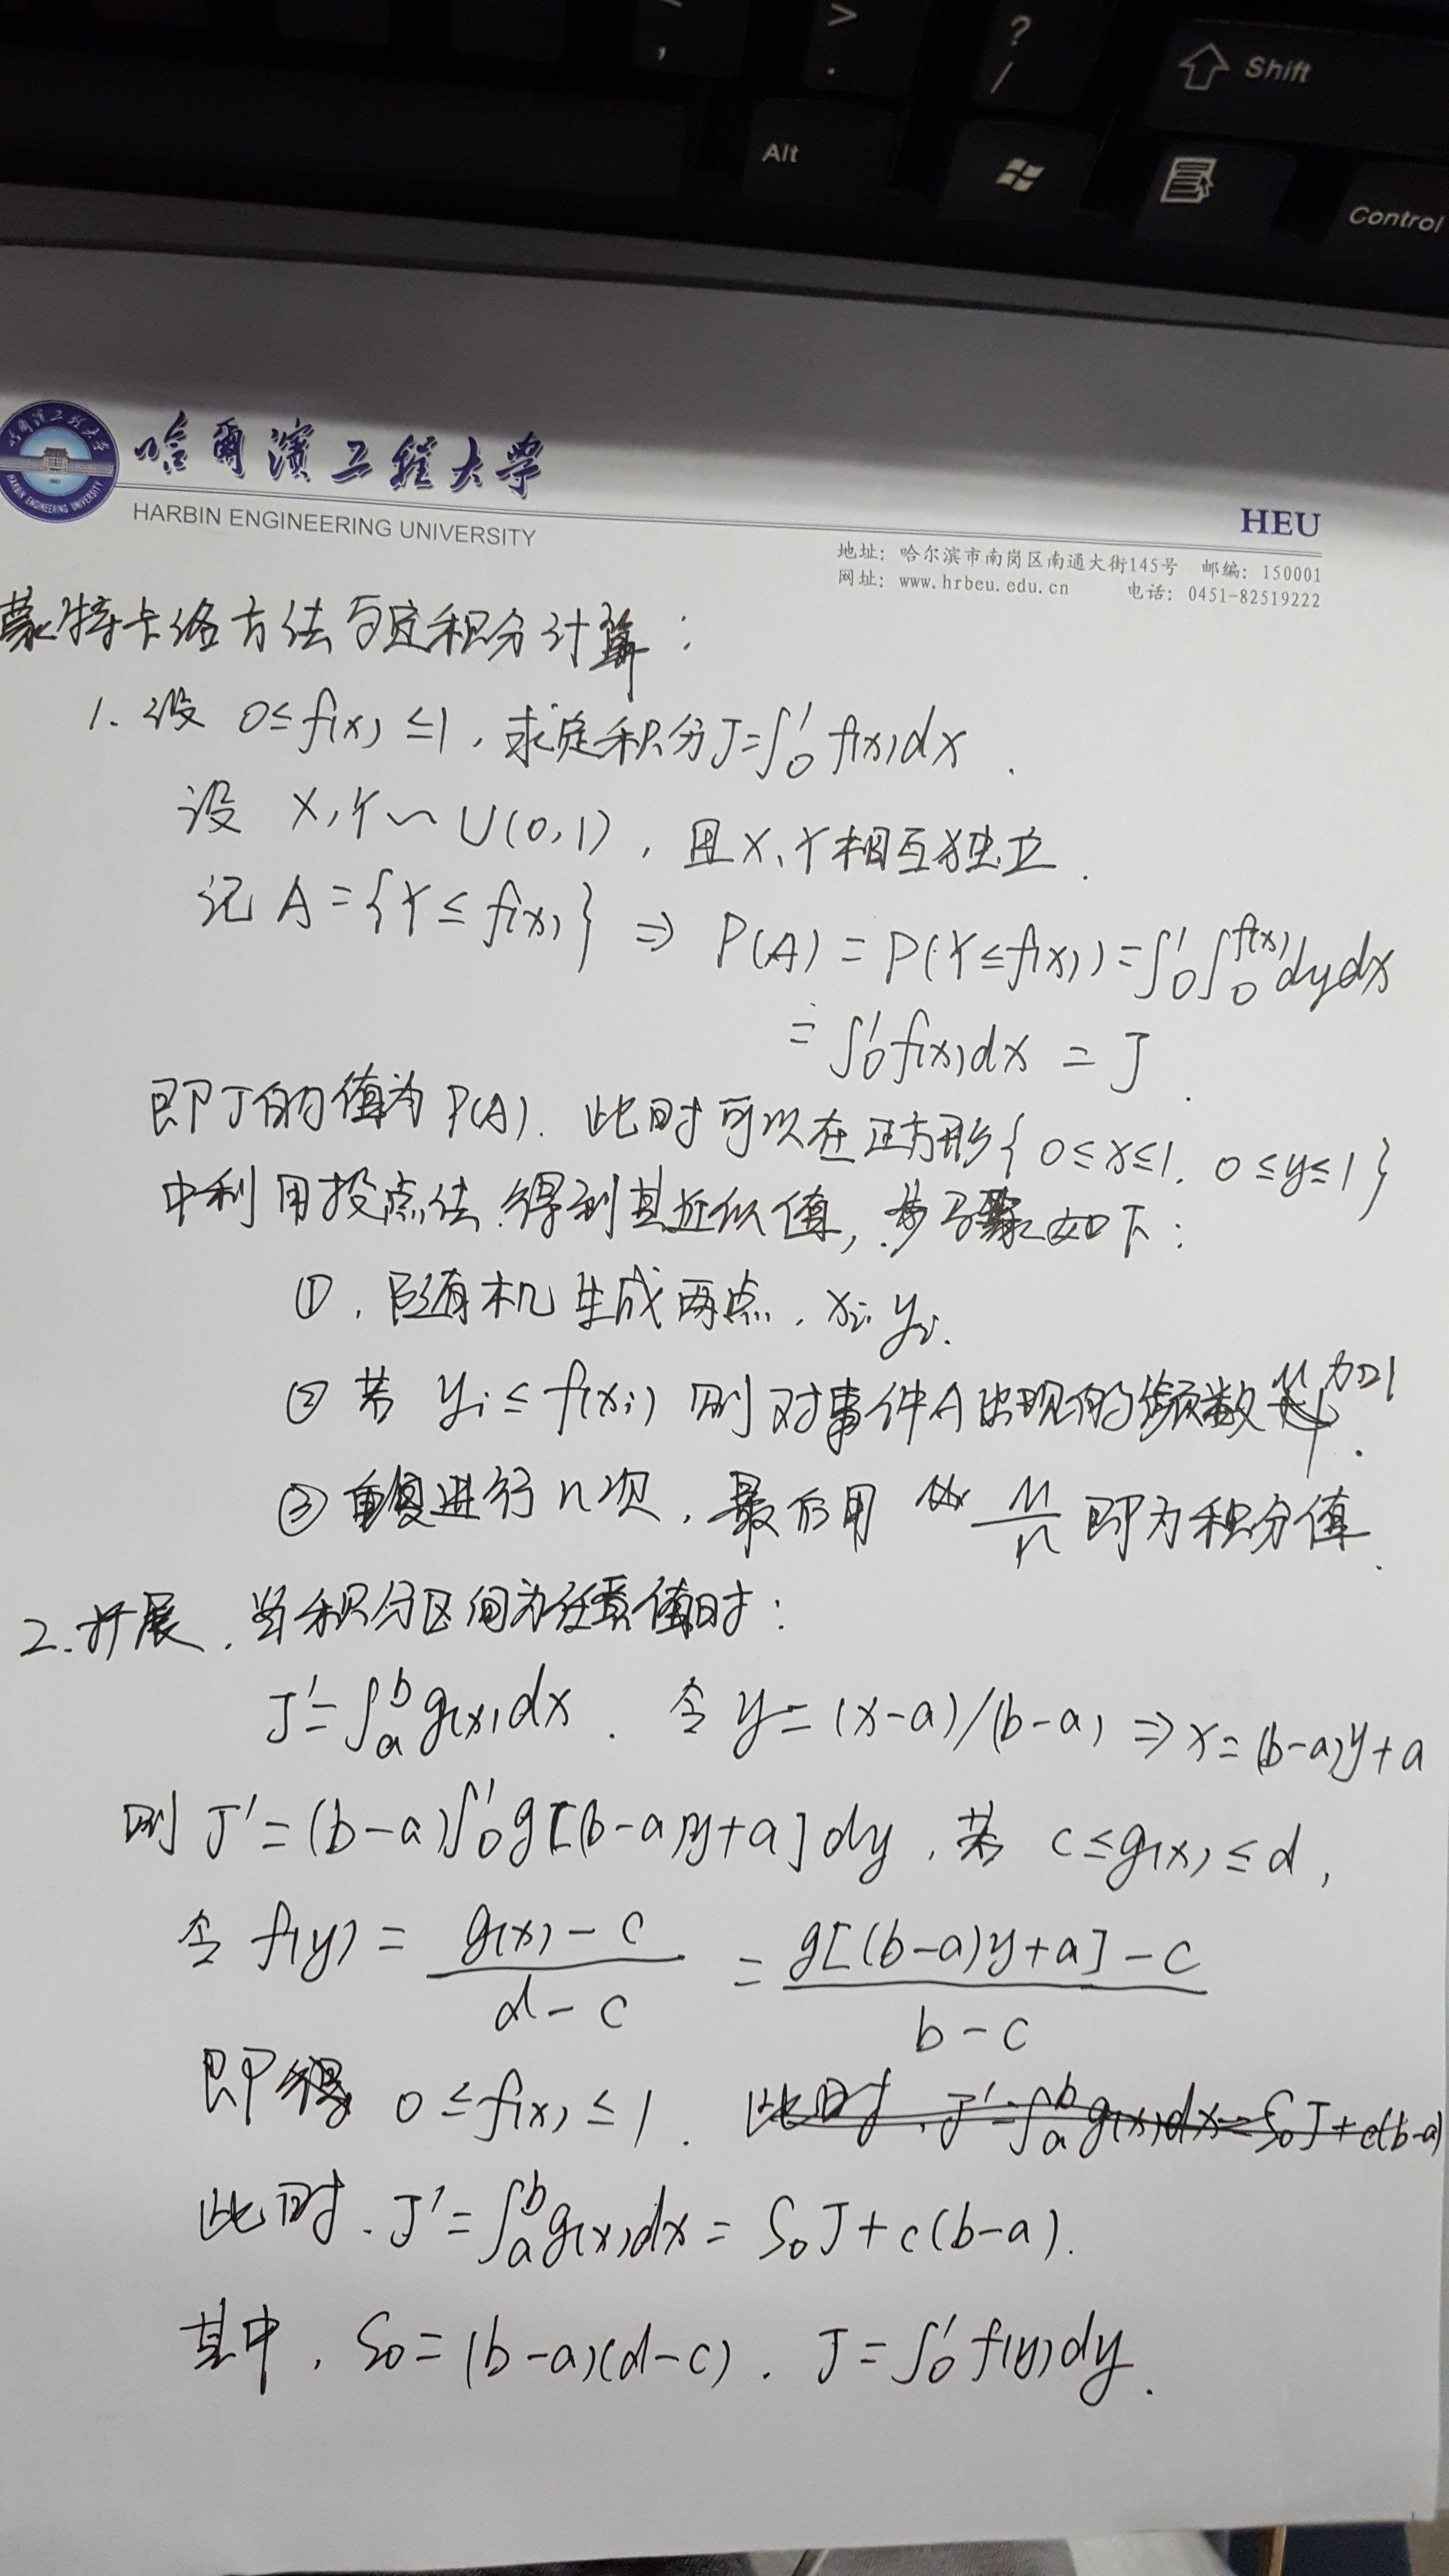 < ,
> .
? /
Shift
Alt
Control
哈爾濱工程大學
HARBIN ENGINEERING UNIVERSITY
HEU
地址: 哈尔滨市南岗区南通大街145号 邮编: 150001
网址: www.hrbeu.edu.cn 电话: 0451-82519222
蒙特卡络方法与定积分计算:
1. 设 0≤f(x)≤1, 求定积分J=∫₀¹f(x)dx.
设 X,Y～U(0,1), 且X、Y相互独立.
记 A={Y≤f(x)} ⇒ P(A)=P(Y≤f(x))=∫₀¹∫₀^{f(x)}dydx
=∫₀¹f(x)dx=J.
即J的值为P(A). 此时可以在正方形{0≤x≤1. 0≤y≤1}
中利用投点法.得到其近似值, 步骤如下:
①. 随机生成两点, xᵢ yᵢ.
② 若 yᵢ≤f(xᵢ) 则对事件A出现的频数 μ 加1.
③ 重复进行n次, 最后用 μ/n 即为积分值.
2. 扩展, 当积分区间为任意值时:
J'=∫ₐᵇg(x)dx. 令 y=(x-a)/(b-a) ⇒ x=(b-a)y+a
则 J'=(b-a)∫₀¹g[(b-a)y+a]dy, 若 c≤g(x)≤d,
令 f(y)=(g(x)-c)/(d-c)=(g[(b-a)y+a]-c)/(b-c)
即得 0≤f(x)≤1. 此时, J'=∫ₐᵇg(x)dx=S₀J+c(b-a)
此时. J'=∫ₐᵇg(x)dx=S₀J+c(b-a).
其中, S₀=(b-a)(d-c). J=∫₀¹f(y)dy.